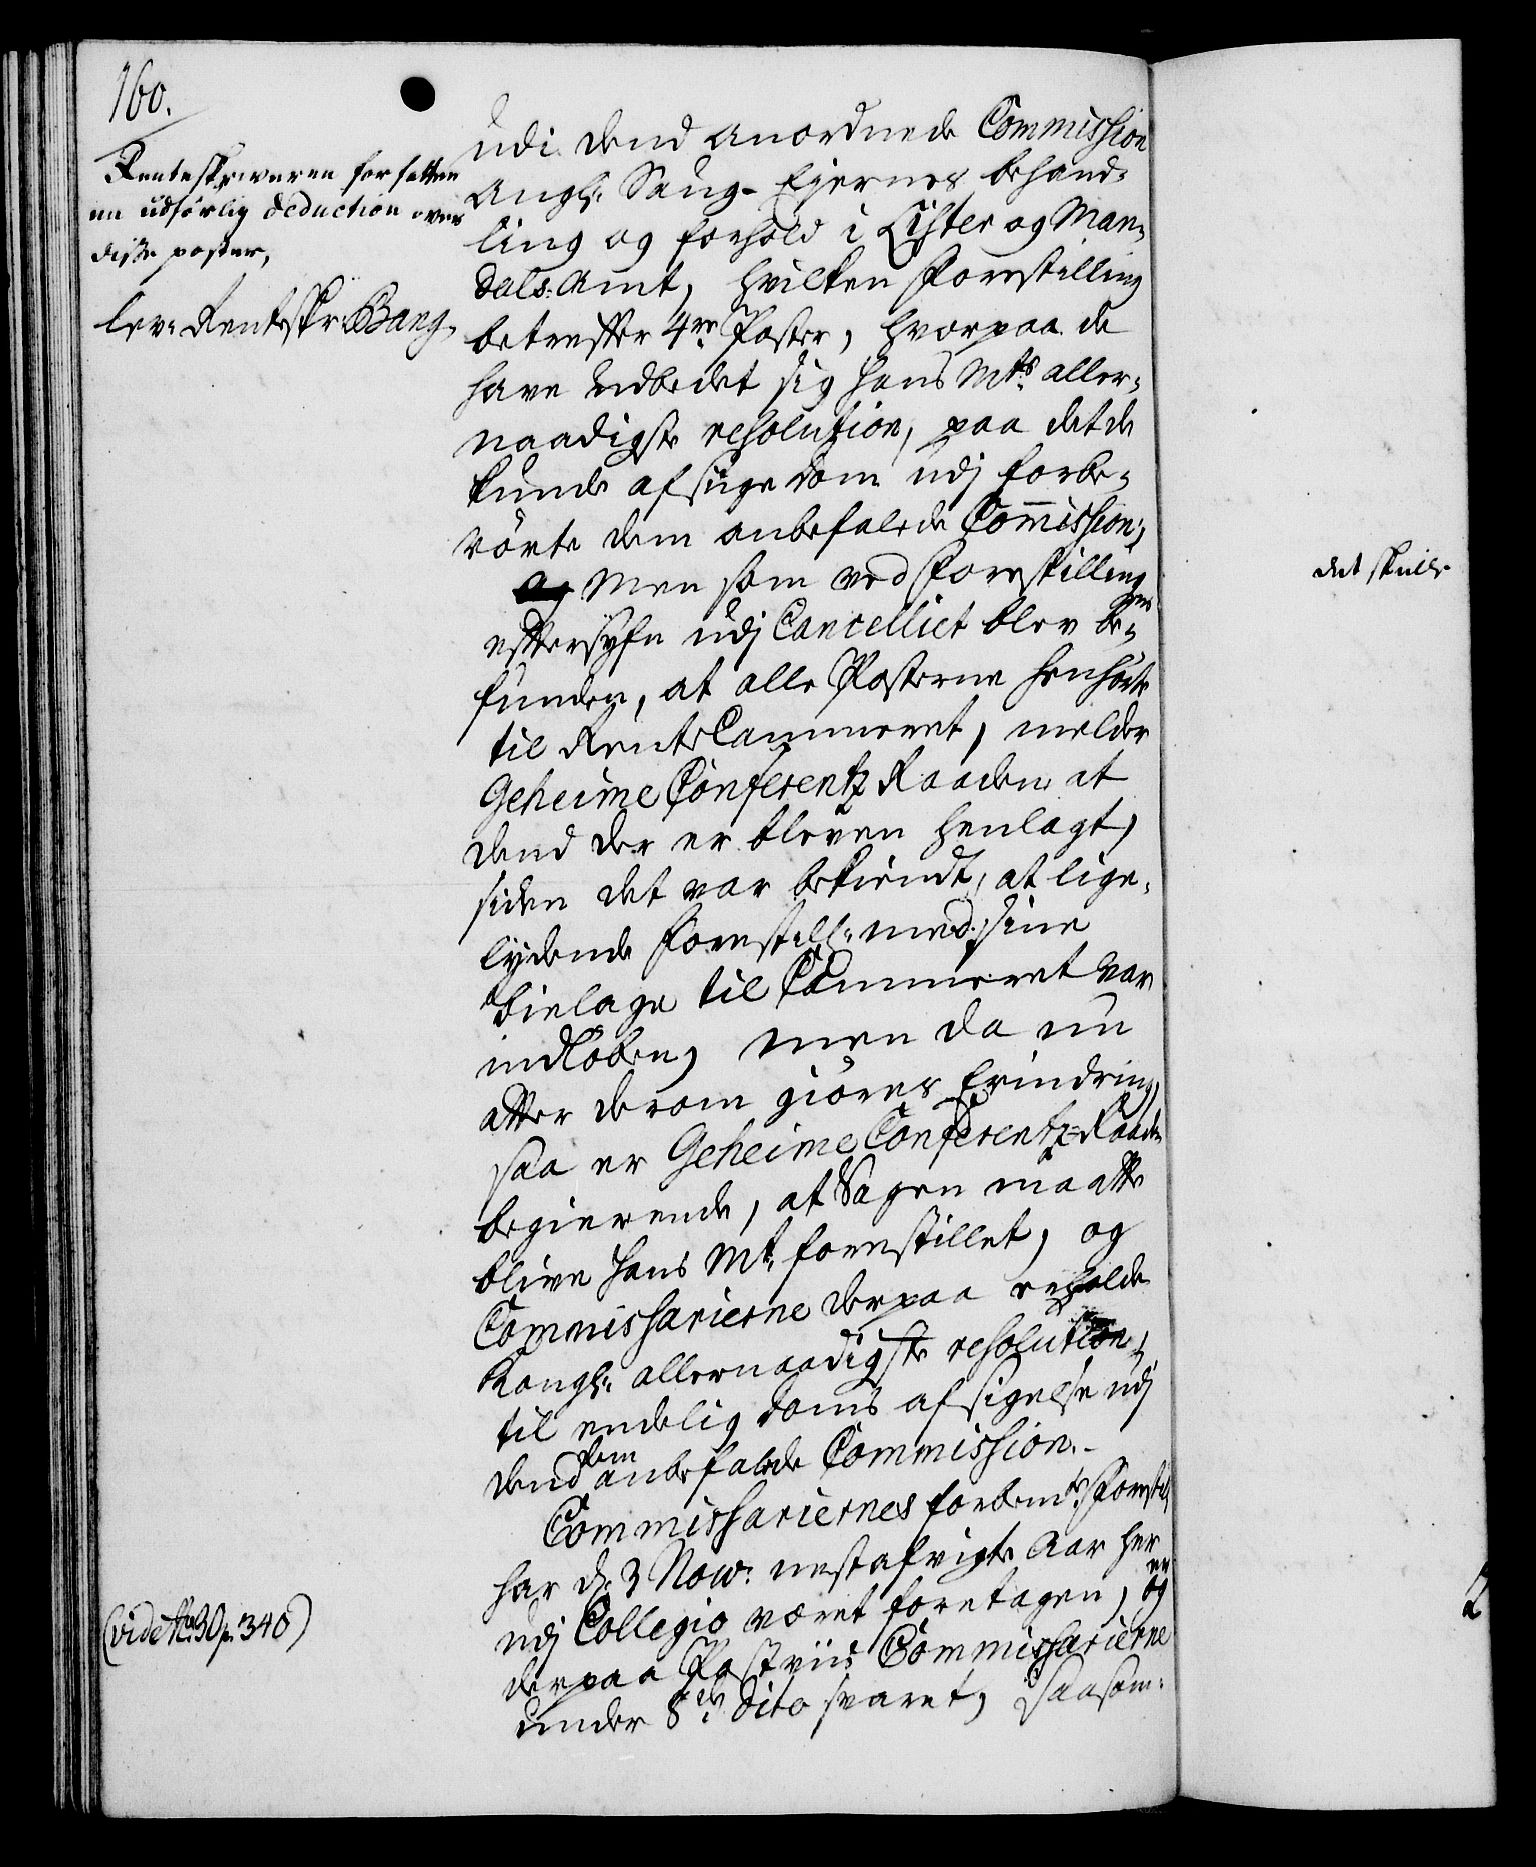 160.
Renteskriveren forfatter
en udförlig deduction over
disse poster,
lev: Rentskr: Bang.
udi dend anordnede Commission
angl: Saug-Ejernes behand-
ling og forhold i Lister og Man-
dals: Amt, hvilken Forestilling
betreffer 4re Poster, hvorpaa de
have udbedet sig Hans Mts aller-
naadigste resolution, paa det de
kunde afsige dom udj forbe-
rörte dem anbefalede Commission;
og Men som ved Forestillingens
eftersyn udj Cancelliet blev be-
funden, at alle Posterne henhörte
til RenteCammeret, melder
Geheime Conferentz Raaden at
dend der er bleven henlagt,
siden det var bekiendt, at lige-
lydende Forestill: med sine
bielage til Cammeret var
indloben, men da nu
atter derom giöres Erindring,
saa er Geheime Conferentz-Raaden
begierende, at Sagen maatte
blive Hans Mt. forestillet, og
Commissarierne derpaa erholde
Kongl: allernaadigste resolution,
til endelig doms afsigelse udj
dend dem anbefalede Commission.-
Commissariernes forbemte Forestill
har d. 3 Nov: nestafvigte Aar her
udj Collegio været foretagen, og er
derpaa Postviis Commissarierne
under 8de dito svaret, Saasom-
(vide No. 30 p. 340)
det skulle